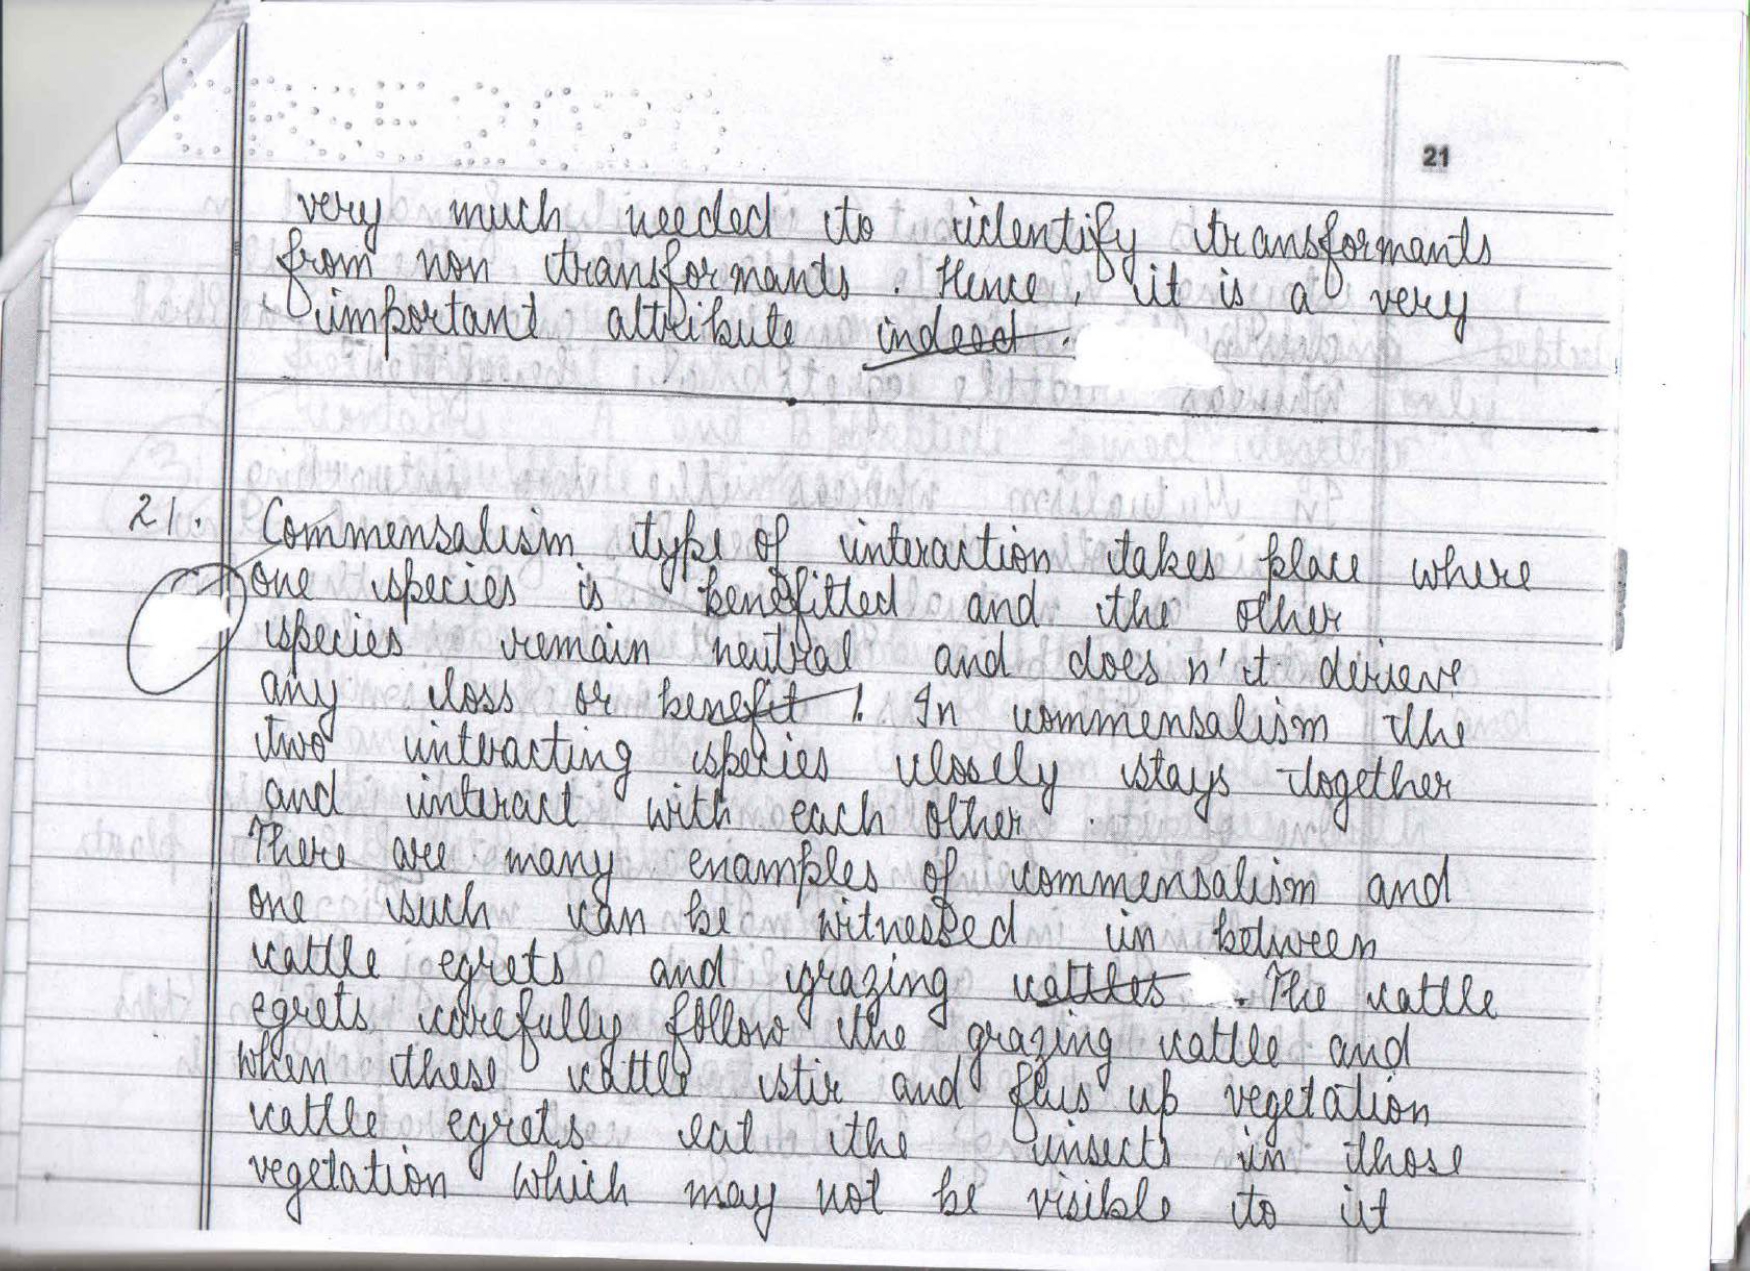 21
very much needed to identify transformants
from non transformants. Hence, it is a very
important attribute indeed.
21. Commensalism type of interaction takes place where
one species is benefitted and the other
species remain neutral and does n't derieve
any loss or benefit . In commensalism the
two interacting species closely stays together
and interact with each other .
There are many enamples of commensalism and
one such can be witnessed in between
cattle egrets and grazing cattles . The cattle
egrets carefully follow the grazing cattle and
when these cattle stir and flus up vegetation
cattle egrets eat the insects in those
vegetation which may not be visible to it